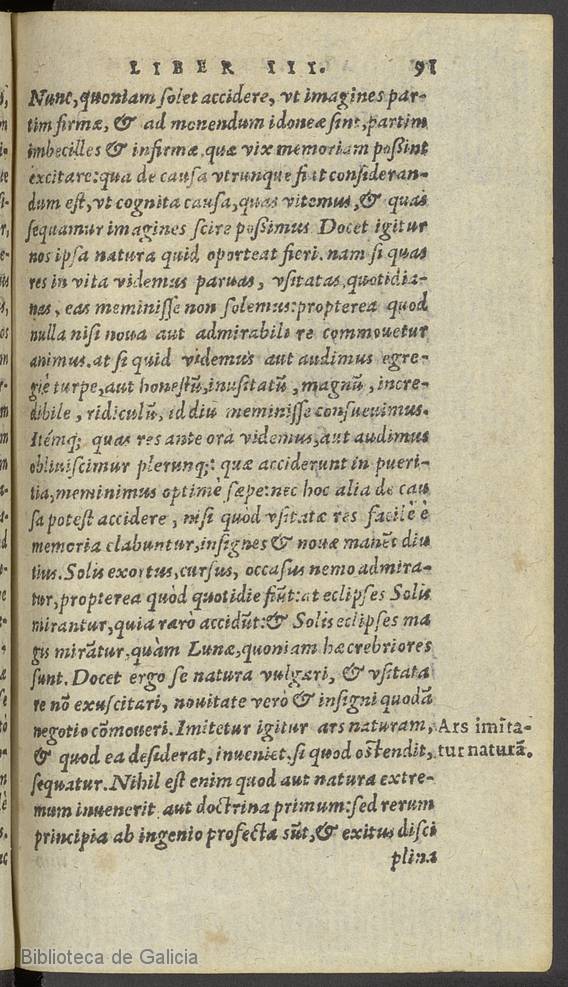 LIBER III. 91
Nunc, quoniam solet accidere, vt imagines par-
tim firmæ, & ad monendum idoneæ sint, partim
imbecilles & infirmæ, quæ vix memoriam poßint
excitare: qua de causa vtrunque fiat consideran-
dum est, vt cognita causa, quas vitemus, & quas
sequamur imagines scire poßimus. Docet igitur
nos ipsa natura quid oporteat fieri. nam si quas
res in vita videmus paruas, vsitatas, quotidia-
nas, eas meminisse non solemus: propterea quod
nulla nisi noua aut admirabili re commouetur
animus. at si quid videmus aut audimus egre-
giè turpe, aut honestū, inusitatū, magnū, incre-
dibile, ridiculū, id diu meminisse consueuimus.
Itémq; quas res ante ora videmus, aut audimus
obliuiscimur plerunq;: quæ acciderunt in pueri-
tia, meminimus optimè sæpe: nec hoc alia de cau
sa potest accidere, nisi quòd vsitatæ res facilè è
memoria elabuntur, insignes & nouæ manēt diu
tius. Solis exortus, cursus, occasus nemo admira-
tur, propterea quòd quotidie fiūt: at eclipses Solis
mirantur, quia rarò accidūt: & Solis eclipses ma
gis mirātur, quàm Lunæ, quoniam hæ crebriores
sunt. Docet ergo se natura vulgari, & vsitata
re nō exuscitari, nouitate verò & insigni quodā
negotio cōmoueri. Imitetur igitur ars naturam,
& quod ea desiderat, inueniet. si quod ostendit,
sequatur. Nihil est enim quod aut natura extre-
mum inuenerit aut doctrina primum: sed rerum
principia ab ingenio profecta sūt, & exitus disci
plina
Ars imita-
tur naturā.
Biblioteca de Galicia